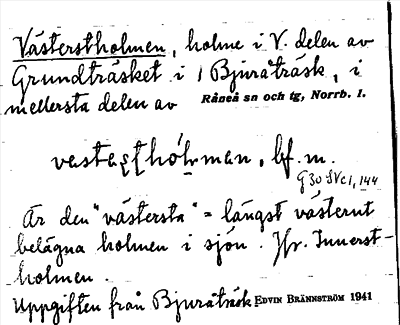 Västerstholmen, holme i V. delen av
Grundträsket i Bjuråträsk, i
mellersta delen av Råneå sn och tg, Norrb. l.
bf. m.
G 30 SV c 1, 144
Är den "västersta" = längst västerut
belägna holmen i sjön. Jfr. Innerst-
holmen.
Uppgiften från Bjuråträsk EDVIN BRÄNNSTRÖM 1941